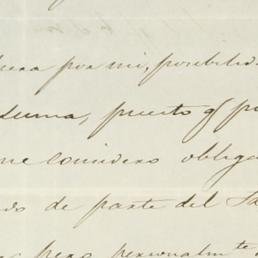 por mi, posibilid
suma, puesto q̃ p
me considero obliga
do de parte del Sa
pero personalmte